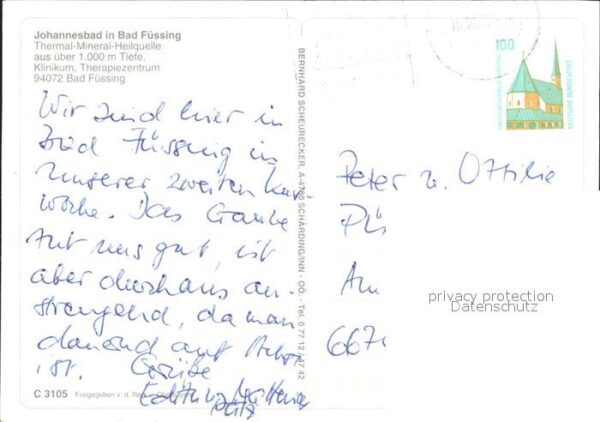 Johannesbad in Bad Füssing
Thermal-Mineral-Heilquelle
aus über 1.000 m Tiefe,
Klinikum, Therapiezentrum
94072 Bad Füssing
Wir sind hier in
Bad Füssing in
unserer zweiten Kur-
woche. Das Ganze
tut uns gut, ist
aber durchaus an-
strengend, da man
dauernd auf Achse
ist. Grüße
Edith u.
C 3105
Freigegeben v. d. Reg.
BERNHARD SCHEURECKER, A-4780 SCHÄRDING/INN - OÖ. - Tel. 0 77 12 / 47 42
100
DEUTSCHE BUNDESPOST
Peter u. Ottilie
Am
667
privacy protection
Datenschutz